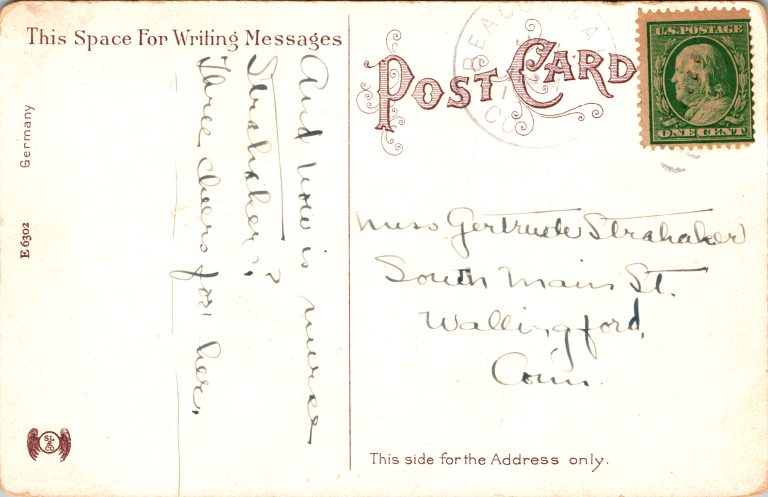 This Space For Writing Messages
And how is nurse
Strahaker?
Three cheers for her.
Germany
E 6302
S.L.
& CO
POST CARD
BEACO
CO
U.S. POSTAGE
ONE CENT
Miss Gertrude Strahaker
South Main St.
Wallingford,
Conn.
This side for the Address only.